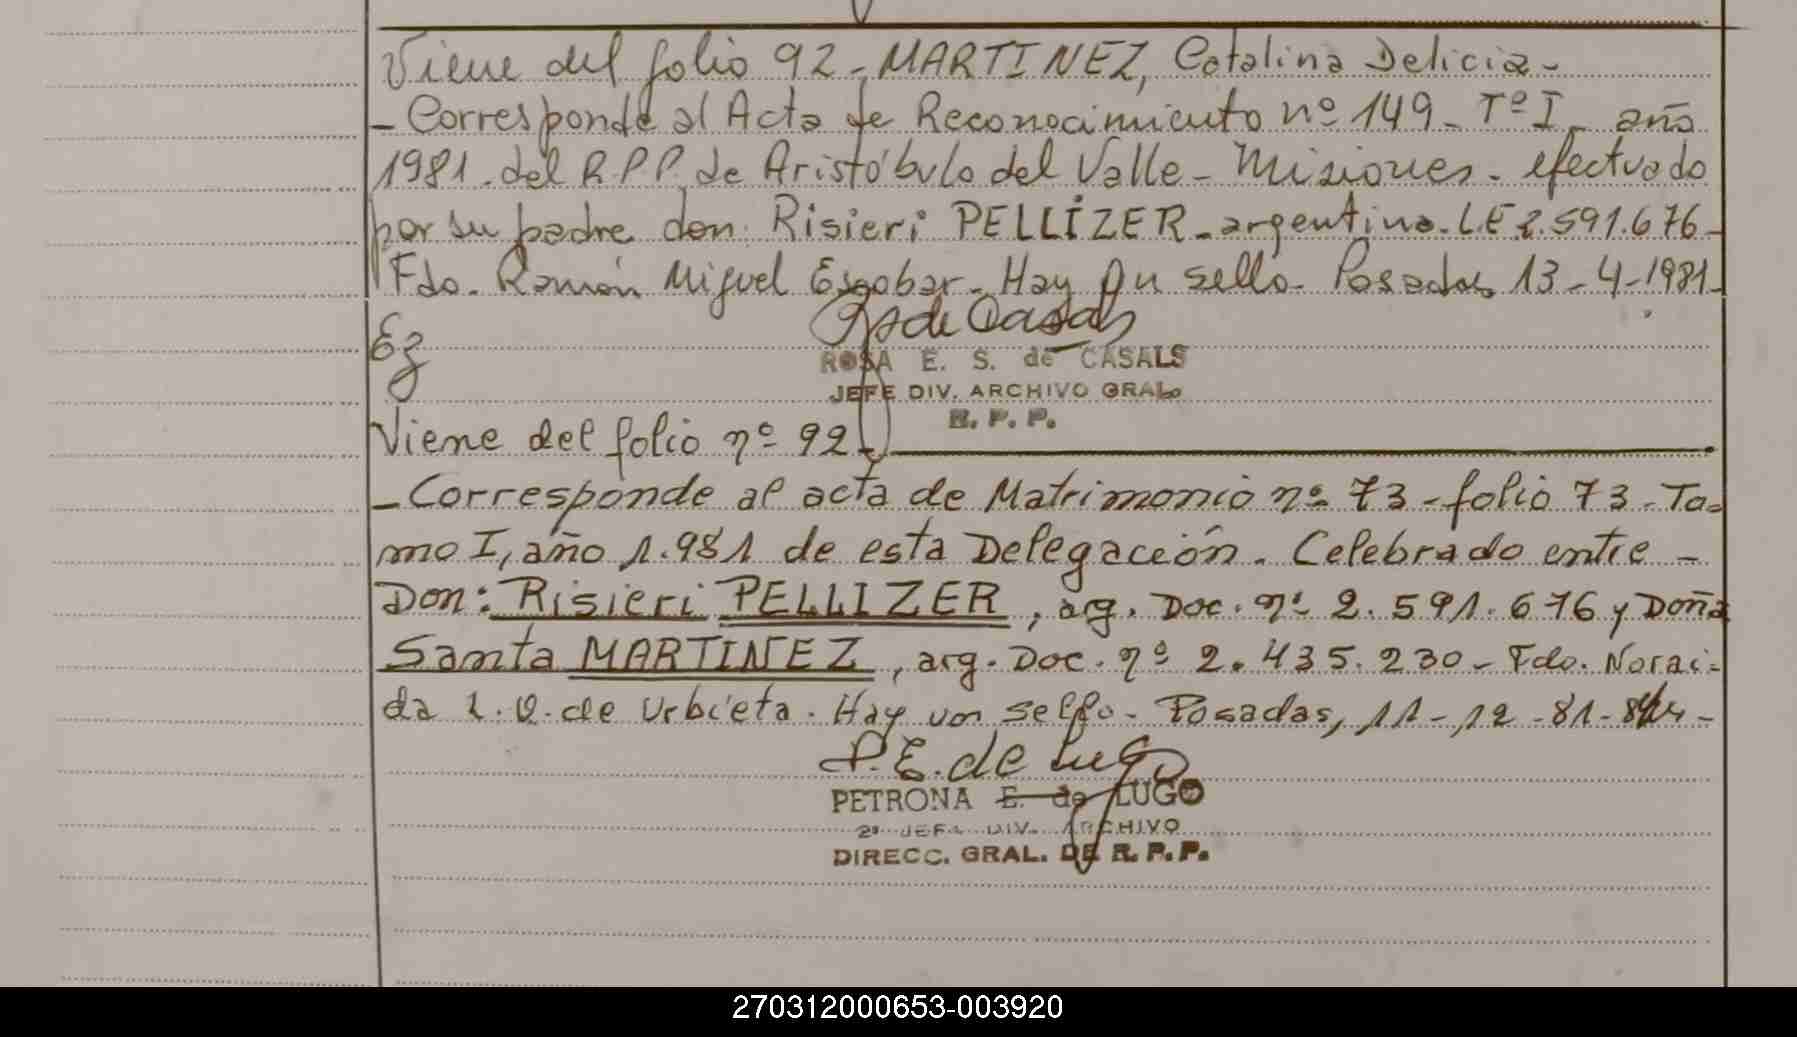 Viene del folio 92 - MARTINEZ, Catalina Delicia -
- Corresponde al Acta de Reconocimiento nº 149 - Tº I - año
1981 - del R.P.P. de Aristóbulo del Valle - Misiones - efectuado
por su padre don Risieri PELLIZER - argentino - L.E 2.591.676 -
Fdo. Ramón Miguel Escobar - Hay Un sello - Posadas 13 - 4 - 1981 -
Ez
R. de Casals
ROSA E. S. de CASALS
JEFE DIV. ARCHIVO GRAL.
R. P. P.
Viene del folio nº 92
- Corresponde al acta de Matrimonio nº 73 - folio 73 - To-
mo I, año 1.981 de esta Delegación - Celebrado entre -
Don: Risieri PELLIZER, arg. Doc. nº 2.591.676 y Doña
Santa MARTINEZ, arg. Doc. nº 2.435.230 - Fdo. Noraci-
da de Urbieta. Hay un sello - Posadas, 11 - 12 - 81 -
P. E. de Lugo
PETRONA E. de LUGO
2ª JEFA DIV. ARCHIVO
DIRECC. GRAL. DE R. P. P.
270312000653-003920